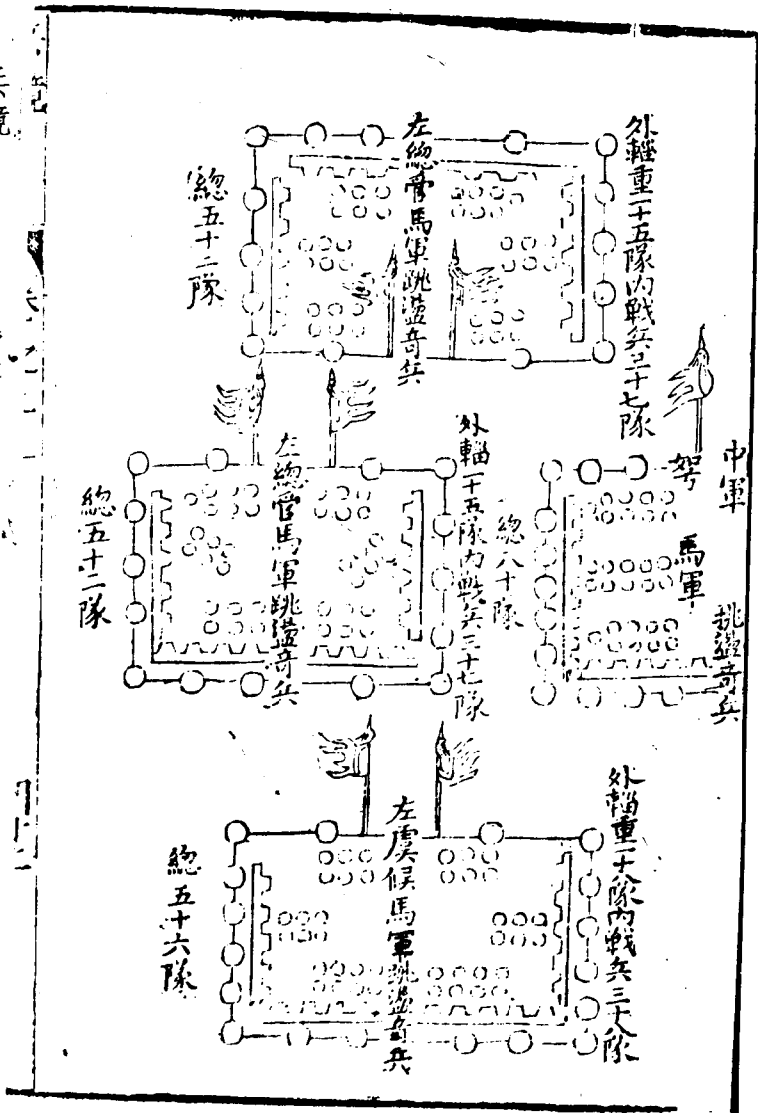 外輜重一十五隊內戰兵三十七隊
左總管馬軍跳盪奇兵
總五十二隊
中軍
弩
馬軍
跳盪奇兵
總八十隊
外輜一十五隊內戰兵三十七隊
左總管馬軍跳盪奇兵
總五十二隊
外輜重一十八隊內戰兵三十八隊
左虞候馬軍跳盪奇兵
總五十六隊